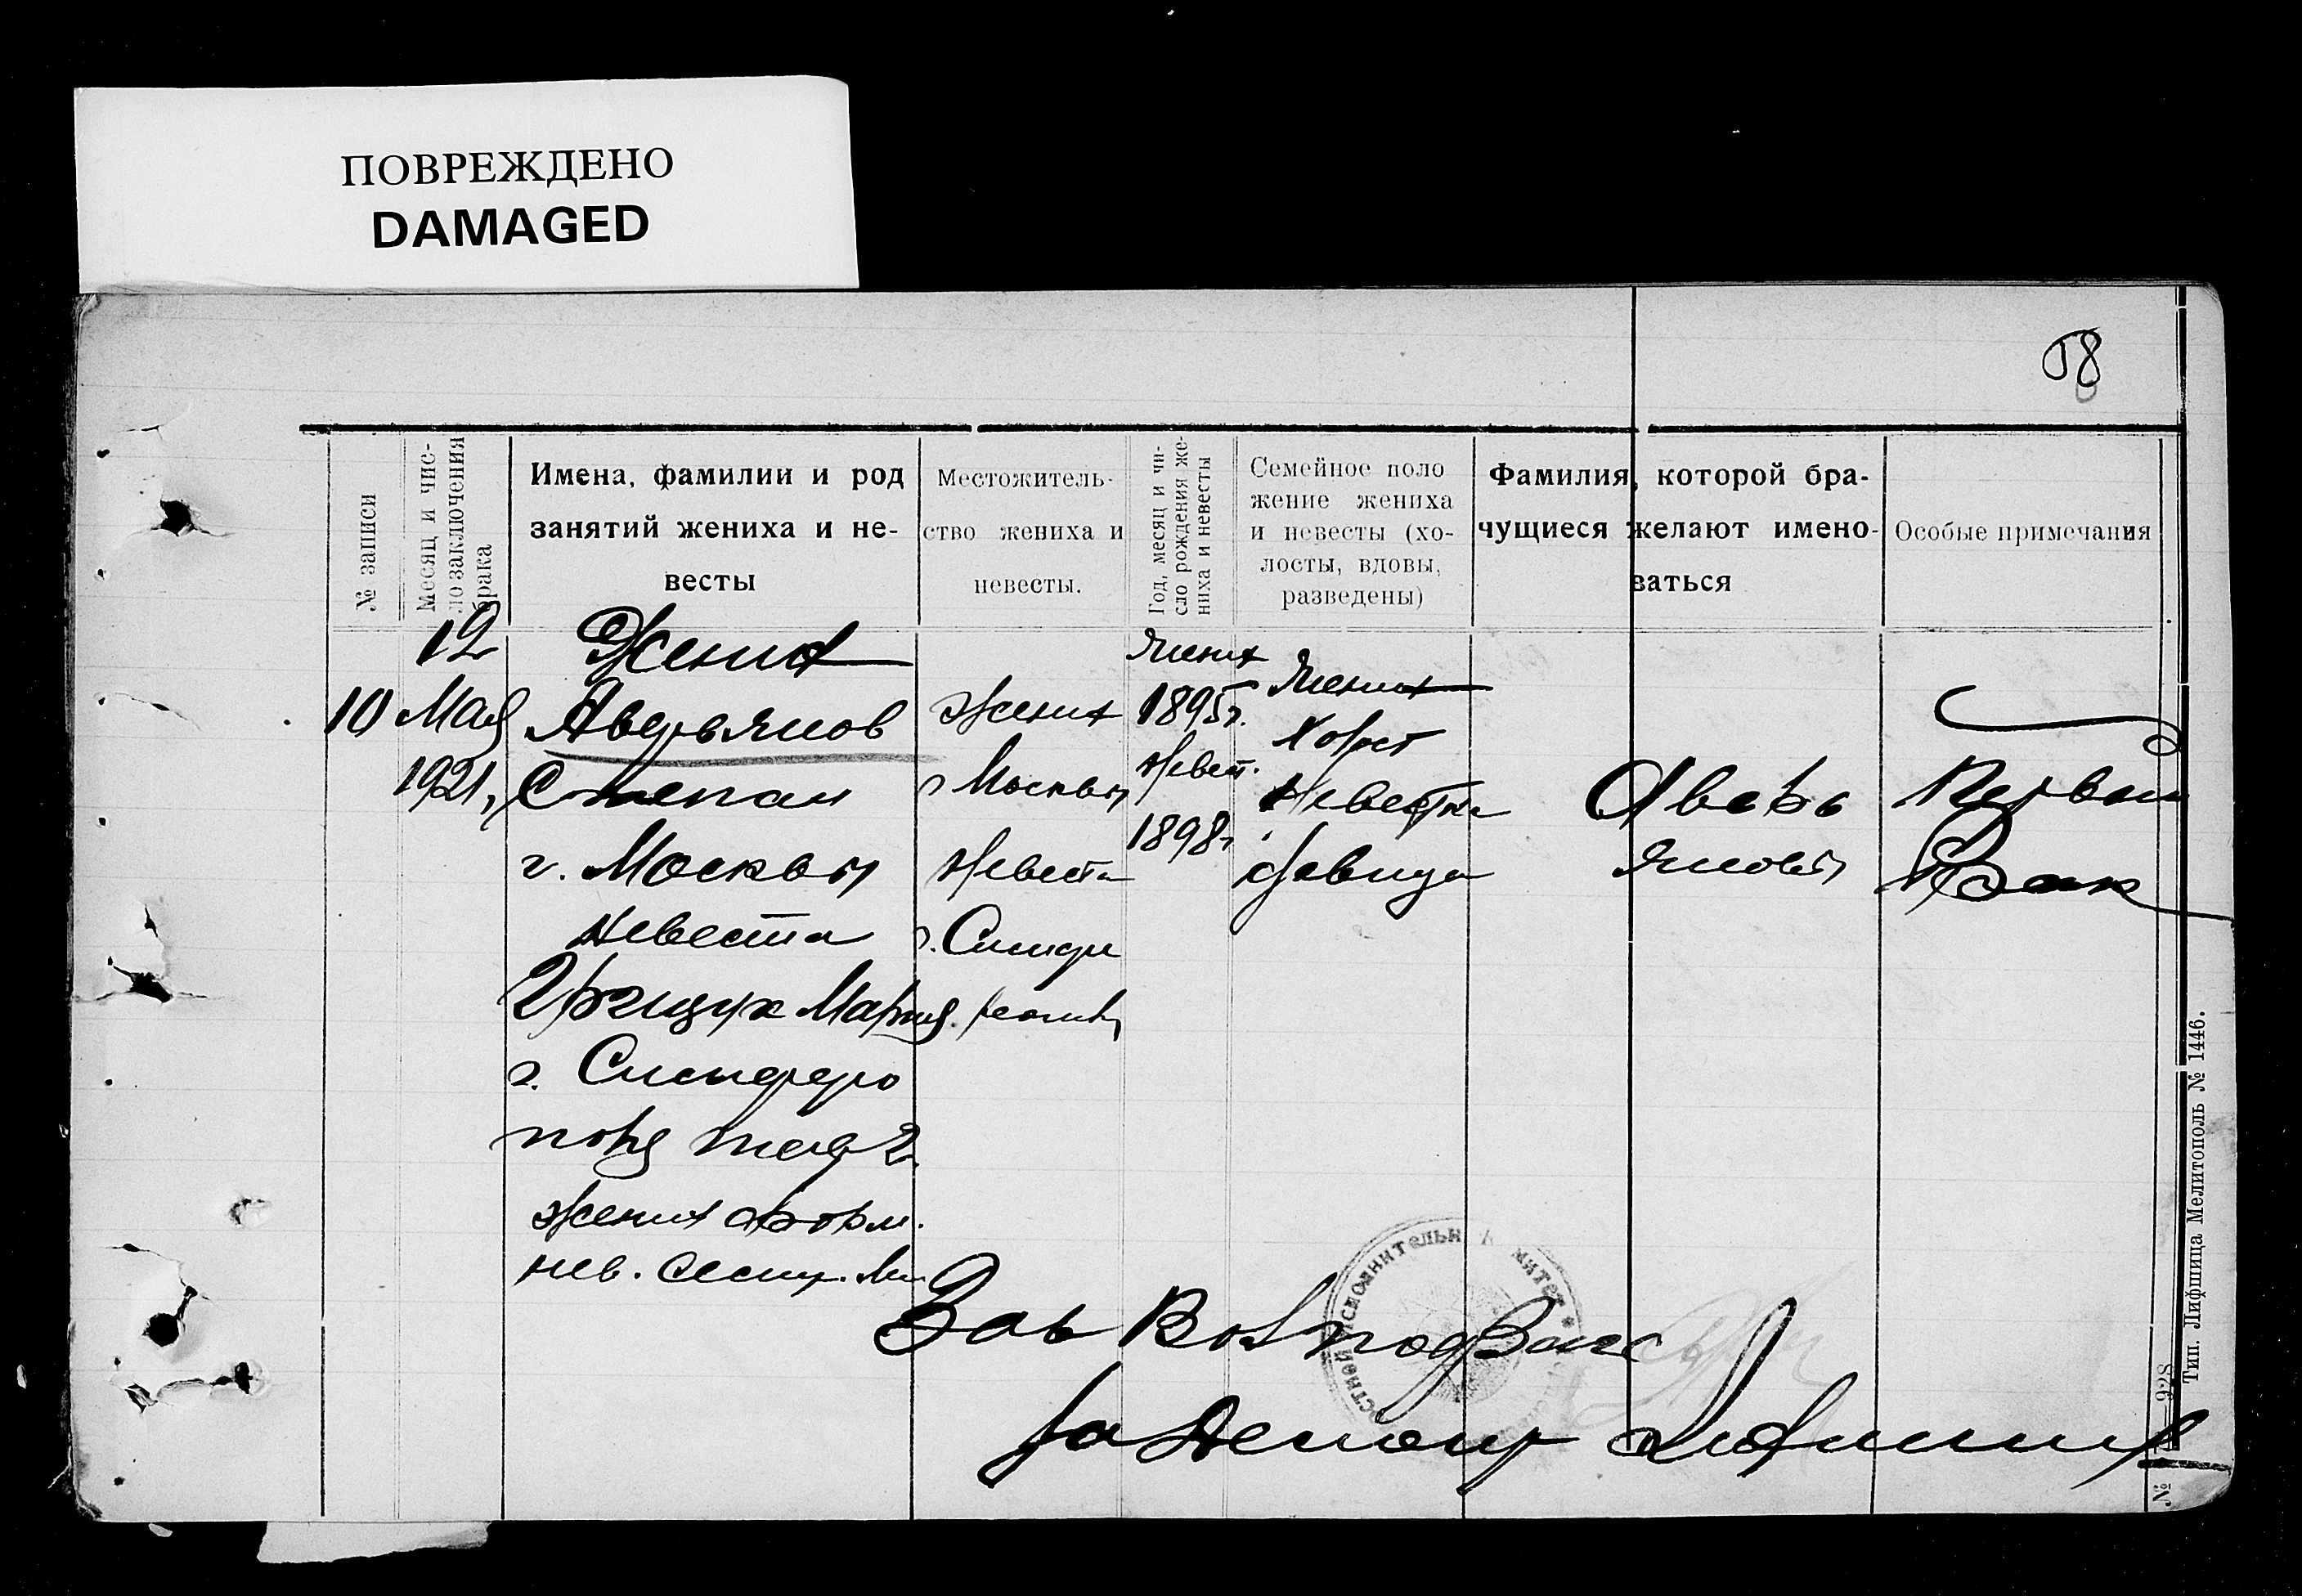 ПОВРЕЖДЕНО
DAMAGED
58
№ записи
Месяц и чис-
ло заключения
брака
Имена, фамилии и род
занятий жениха и не-
весты
Местожитель-
ство жениха и
невесты.
Год, месяц и чи-
сло рождения же-
ниха и невесты
Семейное поло
жение жениха
и невесты (хо-
лосты, вдовы,
разведены)
Фамилия, которой бра-
чущиеся желают имено-
ваться
Особые примечания
10
12
Мая
1921
Жених
Аверьянов
Степан
г. Москвы
Невеста
Мария
г. Симферо
поля
Жених
нев.
Жених
г Москвы
Невеста
г. Симфе
рополь
Жених
1895г.
Невест.
1898г
Жених
Холост
Невеста
девица
Аверь
яновы
Первый
Брак
Зав
Тип. Лифшица Мелитополь № 1446.
№ 928